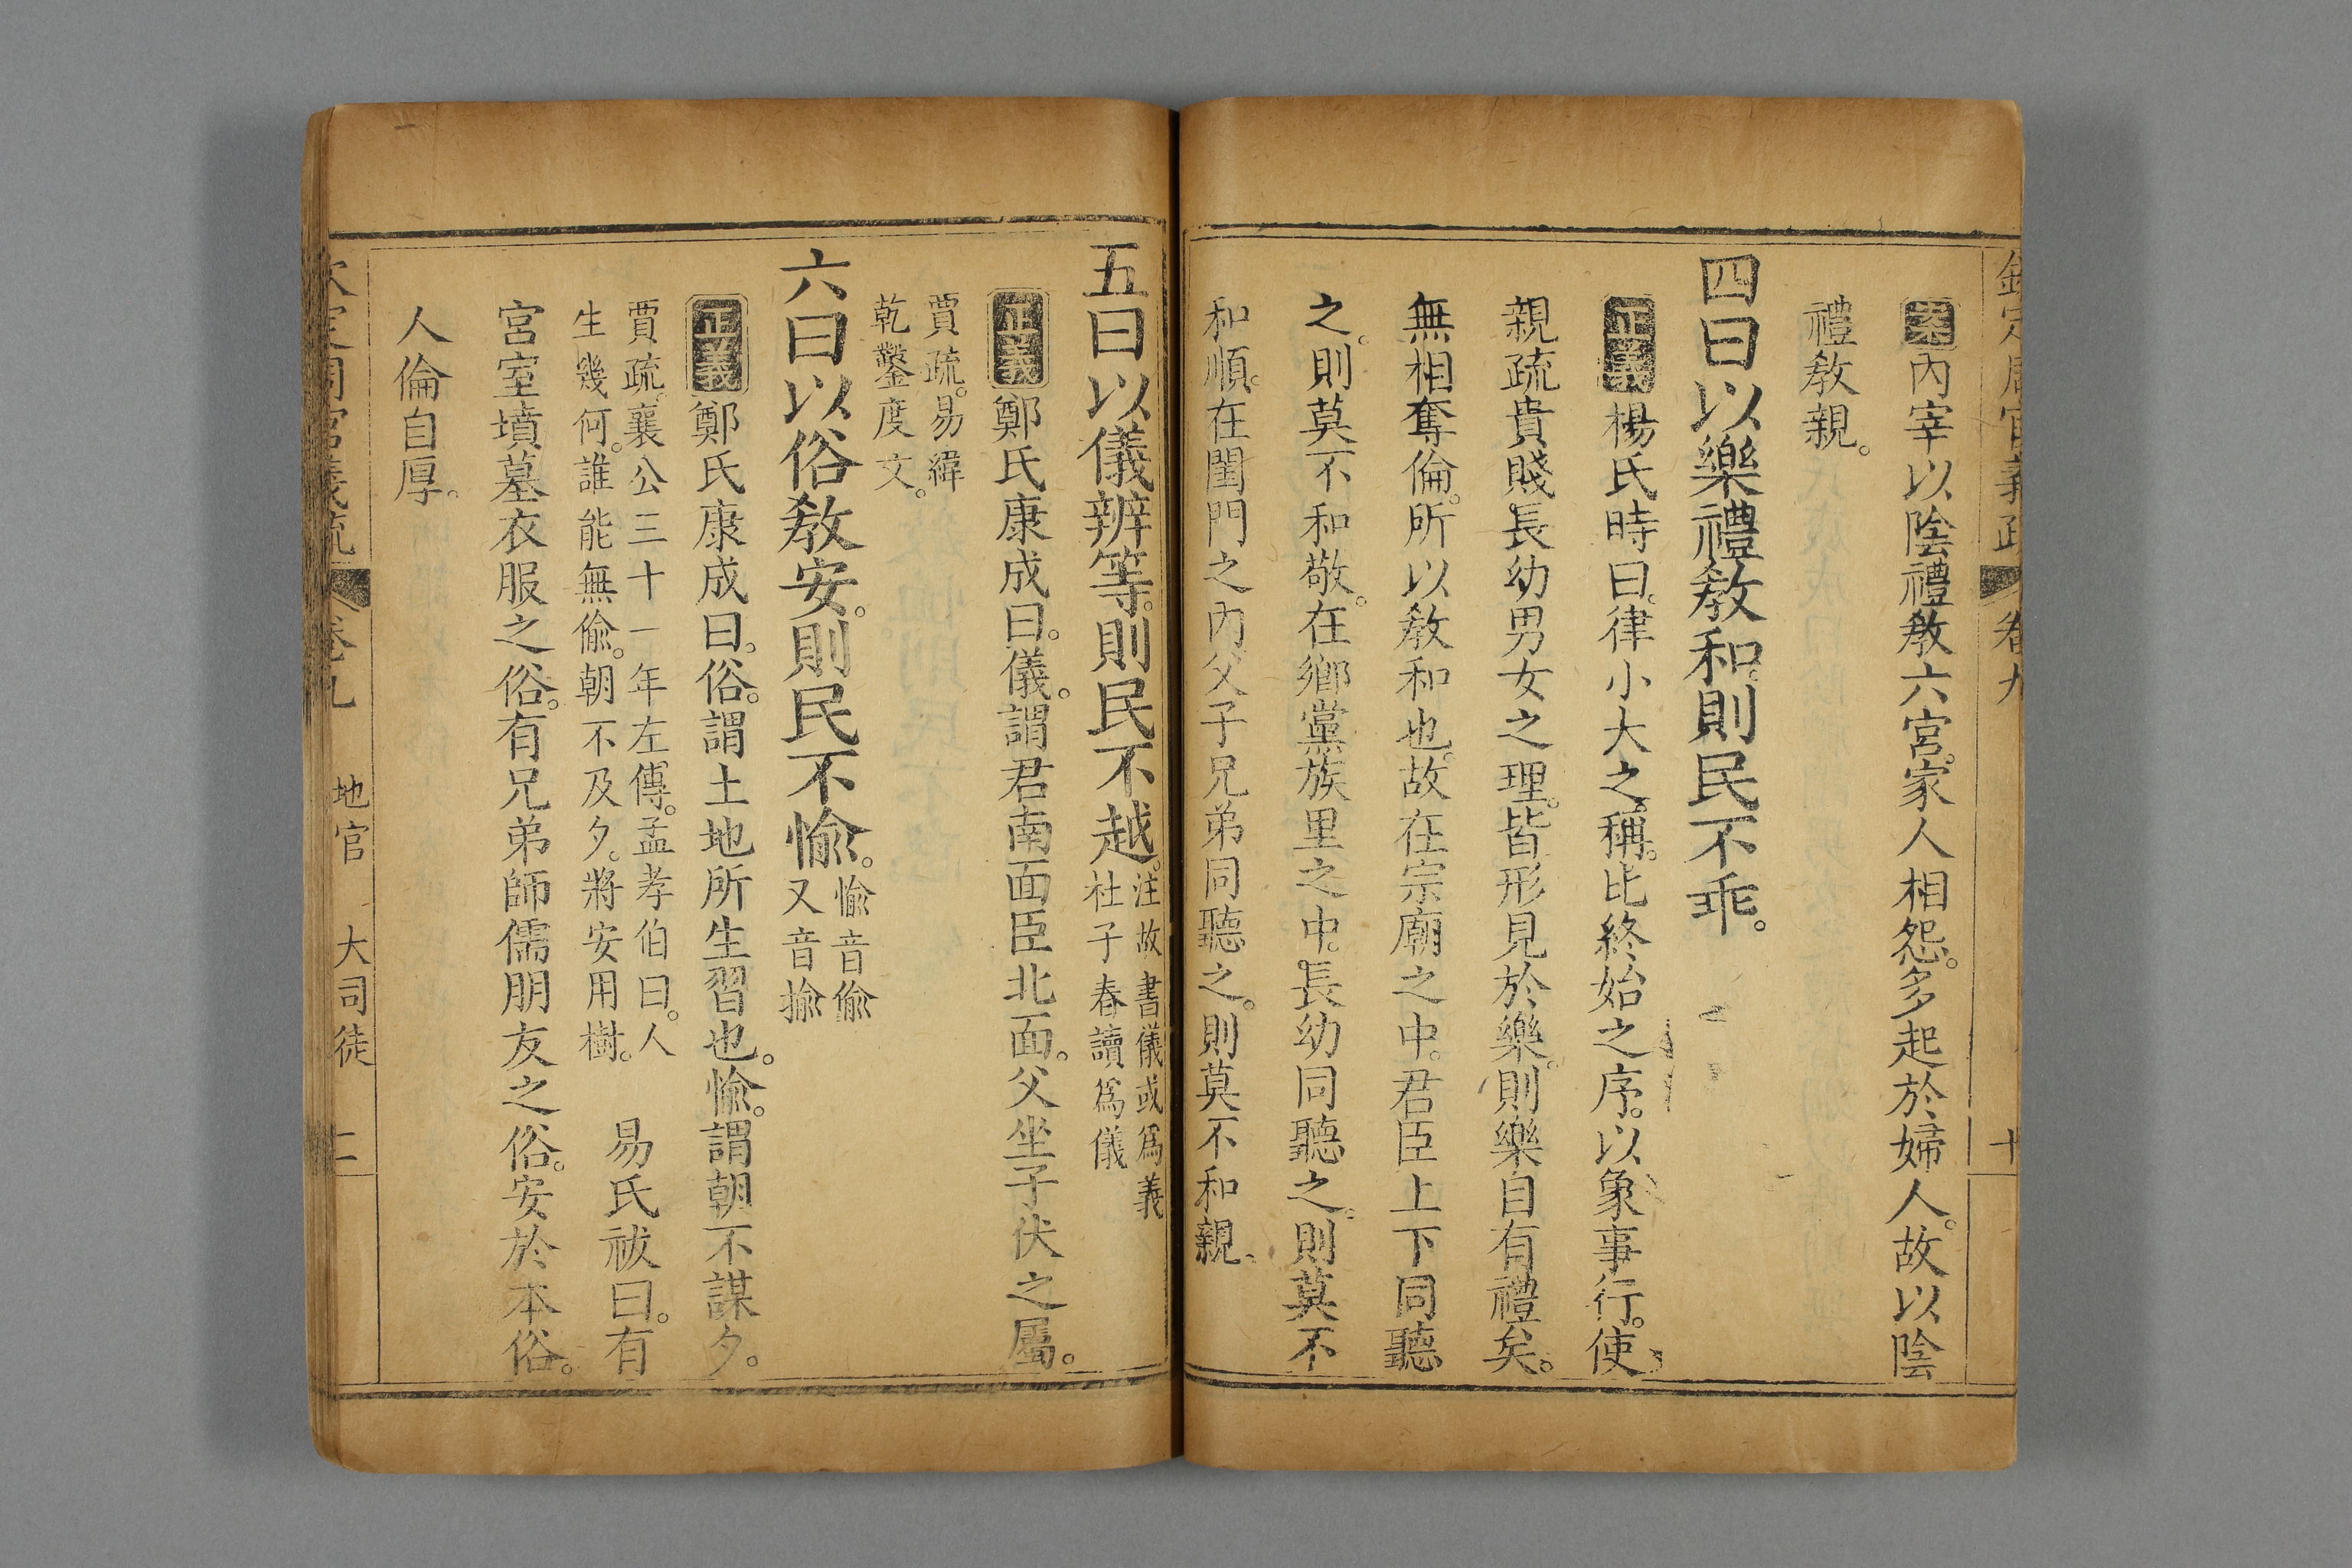 欽定周官義疏 卷九 十
案內宰以陰禮敎六宮。家人相怨。多起於婦人。故以陰
禮敎親。
四曰以樂禮敎和。則民不乖。
正義楊氏時曰。律小大之稱。比終始之序。以象事行。使
親疏貴賤長幼男女之理。皆形見於樂。則樂自有禮矣。
無相奪倫。所以敎和也。故在宗廟之中。君臣上下同聽
之。則莫不和敬。在鄉黨族里之中。長幼同聽之。則莫不
和順。在閨門之內父子兄弟同聽之。則莫不和親。
五曰以儀辨等。則民不越。注故書儀或爲義
杜子春讀爲儀
正義鄭氏康成曰。儀。謂君南面臣北面。父坐子伏之屬。
賈疏。易緯
乾鑿度文。
六曰以俗敎安。則民不愉。愉音偷
又音揄
正義鄭氏康成曰。俗。謂土地所生習也。愉。謂朝不謀夕。
賈疏。襄公三十一年左傳。孟孝伯曰。人
生幾何。誰能無偷。朝不及夕。將安用樹。
易氏祓曰。有
宮室墳墓衣服之俗。有兄弟師儒朋友之俗。安於本俗。
人倫自厚。
欽定周官義疏 卷九 地官 大司徒